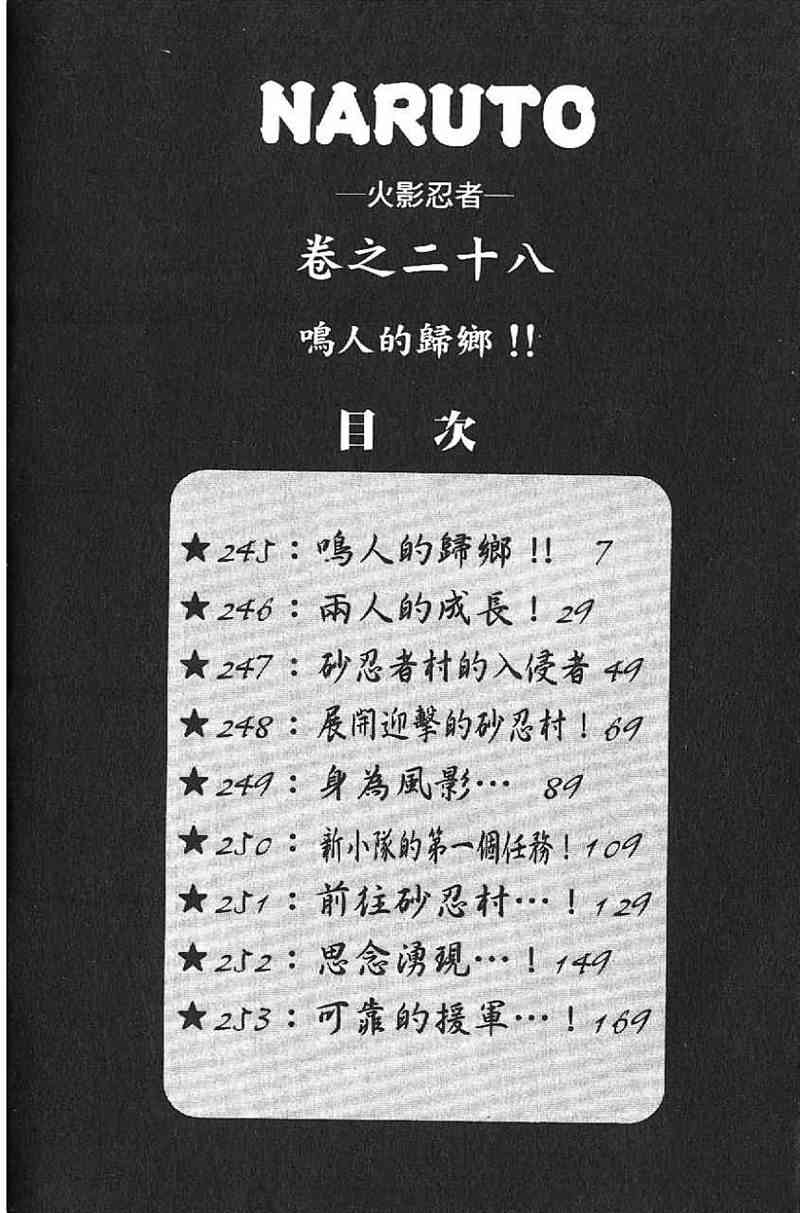 NARUTO
—火影忍者—
卷之二十八
鳴人的歸鄉!!
目 次
★245：鳴人的歸鄉!! 7
★246：兩人的成長! 29
★247：砂忍者村的入侵者 49
★248：展開迎擊的砂忍村! 69
★249：身為風影… 89
★250：新小隊的第一個任務! 109
★251：前往砂忍村…! 129
★252：思念湧現…! 149
★253：可靠的援軍…! 169